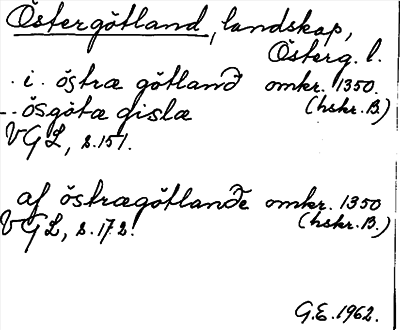 Östergötland, landskap,
Österg. l.
. i. östræ götland omkr. 1350.
-- ösgötæ gislæ (hskr. B.)
VGL, s. 151.
af östrægötlande omkr. 1350
VGL, s. 172. (hskr. B.)
G.E. 1962.